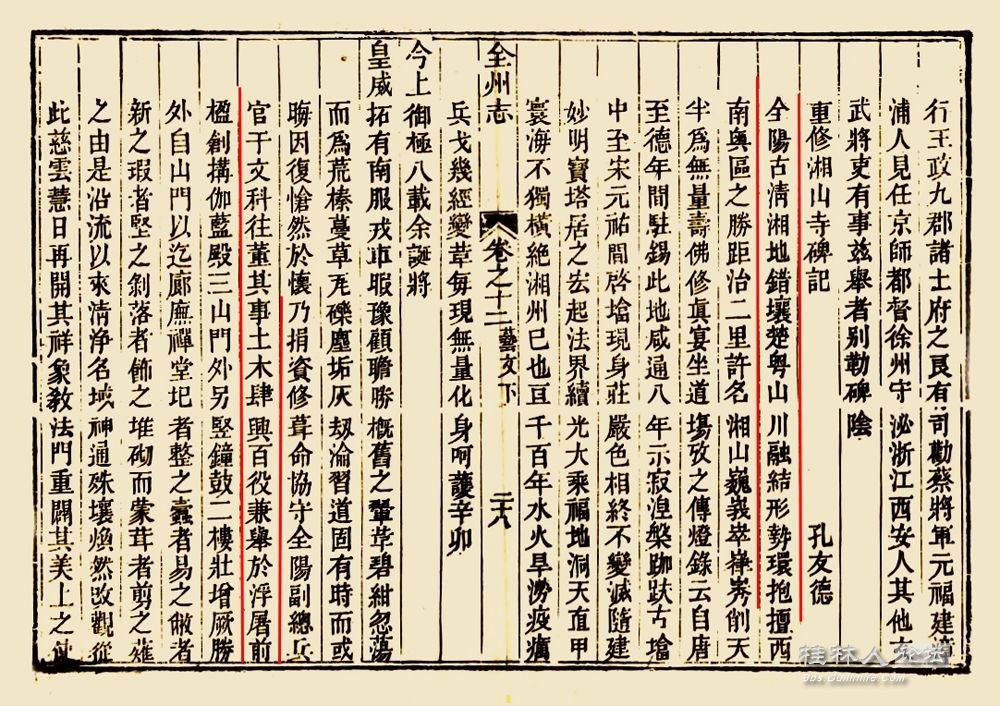 行王政九郡諸士府之良有司勸蔡將軍元福建
浦人見任京師都督徐州守泌浙江西安人其他
武將吏有事茲舉者別勒碑陰
重修湘山寺碑記 孔友德
全陽古清湘地錯壤楚粵山川融結形勢環抱擅西
南奧區之勝距治二里許名湘山巍峩崒嵂秀削天
半爲無量壽佛修真宴坐道塲攷之傳燈錄云自唐
至德年間駐錫此地咸通八年示寂湼槃跏趺古塔
中至宋元祐間啓塔現身莊嚴色相終不變滅隨建
妙明寶塔居之宏起法界續光大乘福地洞天直甲
寰海不獨橫絕湘州已也亘千百年水火旱澇疫癘
兵戈幾經變革每現無量化身呵護辛卯
全州志 卷之十二 藝文下 二十八
今上御極八載余誕將
皇威拓有南服戎車暇豫顧瞻勝概舊之翬革碧紺忽蕩
而爲荒榛蔓草瓦礫塵垢灰刼淪習道固有時而或
晦因復愴然於懷乃捐資修葺命協守全陽副總兵
官于文科往董其事土木肆興百役兼舉於浮屠前
楹創搆伽藍殿三山門外另竪鐘鼓二樓壯增厥勝
外自山門以迄廊廡禪堂圮者整之蠧者易之敝者
新之瑕者堅之剝落者飾之堆砌而蒙茸者剪之薙
之由是沿流以來清淨名域神通殊壤煥然改觀從
此慈雲慧日再開其祥象敎法門重闢其美上之
桂林人论坛
bbs.Guilinlife.com